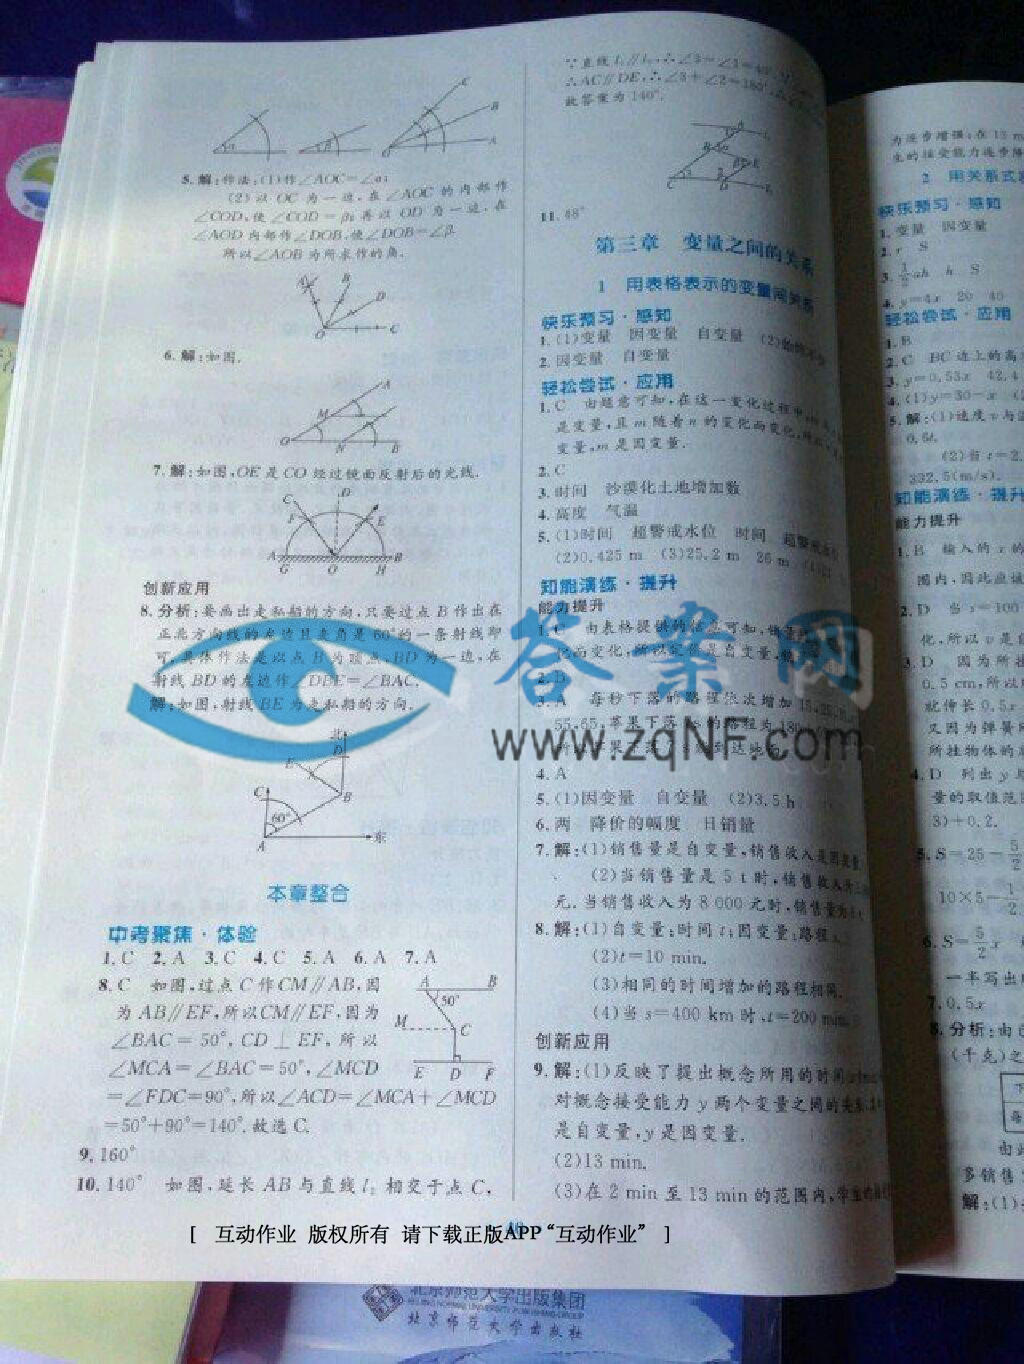 5.解:作法:(1)作∠AOC=∠α;
(2)以 OC 为一边,在∠AOC 的内部作
∠COD,使∠COD=β;再以 OD 为一边,在
∠AOD 内部作∠DOB,使∠DOB=∠β.
所以∠AOB 为所求作的角.
6.解:如图.
7.解:如图,OE 是 CO 经过镜面反射后的光线.
创新应用
8.分析:要画出走私船的方向,只要过点 B 作出在
正北方向线的左边且夹角是 60°的一条射线即
可,具体作法是以点 B 为顶点,BD 为一边,在
射线 BD 的左边作∠DBE=∠BAC.
解:如图,射线 BE 为走私船的方向.
北
60°
东
本章整合
中考聚焦·体验
1.C 2.A 3.C 4.C 5.A 6.A 7.A
8.C 如图,过点 C 作 CM∥AB,因
为 AB∥EF,所以CM∥EF,因为
∠BAC=50°,CD⊥EF,所以
∠MCA=∠BAC=50°,∠MCD
=∠FDC=90°,所以∠ACD=∠MCA+∠MCD
=50°+90°=140°.故选 C.
9.160°
10.140° 如图,延长 AB 与直线 l₂ 相交于点 C,
∴AC∥DE,∴∠3+∠2=180°
故答案为 140°.
11.48°
第三章 变量之间的关系
1 用表格表示的变量间关系
快乐预习·感知
1.(1)变量 因变量 自变量
2.因变量 自变量
轻松尝试·应用
1.C 由题意可知,在这一变化过程中
是变量,且 m 随着 n 的变化而变化
变量,m 是因变量.
2.C
3.时间 沙漠化土地增加数
4.高度 气温
5.(1)时间 超警戒水位 时间 超警戒水位
(2)0.425 m (3)25.2 m 26 m
知能演练·提升
能力提升
1.C 由表格提供的信息可知,销量
化而变化,所以定价是自变量,销
2.D
3.A 每秒下落的路程依次增加
4.A
5.(1)因变量 自变量 (2)3.5 h
6.两 降价的幅度 日销量
7.解:(1)销售量是自变量,销售收入是因变量.
(2)当销售量是 5 t 时,销售收入为
元.当销售收入为 8 000 元时,销售量为
8.解:(1)自变量:时间 t;因变量:路程
(2)t=10 min.
(3)相同的时间增加的路程相同.
(4)当 s=400 km 时,t=200 min.
创新应用
9.解:(1)反映了提出概念所用的时间
对概念接受能力 y 两个变量之间的关系
是自变量,y 是因变量.
(2)13 min.
(3)在 2 min 至 13 min 的范围内,学生的
为逐步增强;在 13 m
生的接受能力逐步降
2 用关系式
快乐预习·感知
1.变量 因变量
2.r S
3.½ah h S
4.y=4x 20 40
轻松尝试·应用
1.B
2.C BC 边上的高
3.y=0.53x 42.4
4.(1)y=30-x
5.解:(1)速度 v 与
0.6t
(2)当 t=2.
332.5(m/s).
知能演练·提升
能力提升
1.B 输入的 x 的
围内,因此应
2.D 当 s=100
化,所以 v 是自
3.D 因为所挂
0.5 cm,所以
就伸长 0.5x
又因为弹簧
所挂物体的
4.D 列出 y 与
量的取值范
3)+0.2.
5.S=25-5/2
10×5-1/2
6.S=5/2x
一半写出
7.0.5x
8.分析:由
(千克)之
多销售
解:(1)
答案网
www.zqNF.com
[ 互动作业 版权所有 请下载正版APP“互动作业” ]
北京师范大学出版集团
BEIJING NORMAL UNIVERSITY PUBLISHING GROUP
北京师范大学出版社